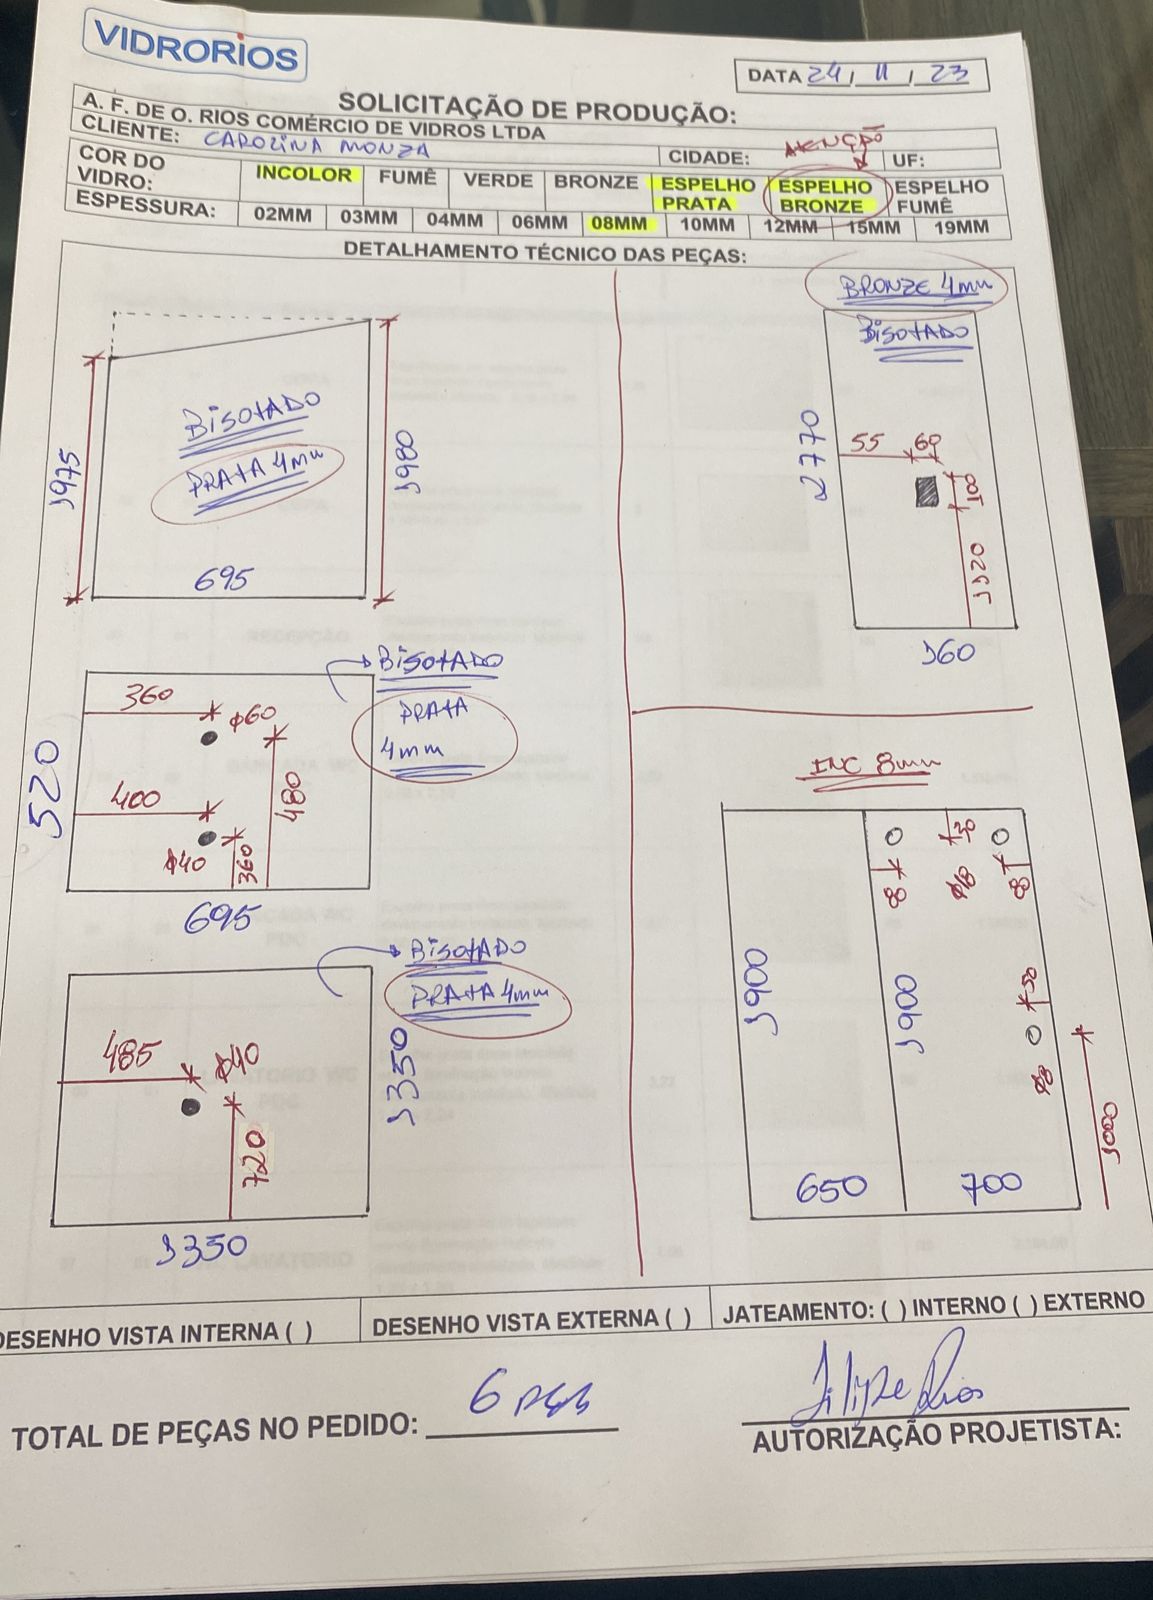 VIDRORIOS
DATA 24 / 11 / 23
SOLICITAÇÃO DE PRODUÇÃO:
A. F. DE O. RIOS COMÉRCIO DE VIDROS LTDA
CLIENTE: CAROLINA MONZA
CIDADE:
ATENÇÃO
UF:
COR DO VIDRO: INCOLOR FUMÊ VERDE BRONZE ESPELHO PRATA ESPELHO BRONZE ESPELHO FUMÊ
ESPESSURA: 02MM 03MM 04MM 06MM 08MM 10MM 12MM 15MM 19MM
DETALHAMENTO TÉCNICO DAS PEÇAS:
BISOTADO
PRATA 4mm
1975
1980
695
BISOTADO
PRATA
4mm
360
ø60
400
ø40
360
480
520
695
BISOTADO
PRATA 4mm
485
ø40
720
1350
1350
BRONZE 4mm
BISOTADO
2770
55
60
100
1120
360
INC 8mm
8
30
ø18
8
1900
1900
50
1000
650
700
DESENHO VISTA INTERNA ( )
DESENHO VISTA EXTERNA ( )
JATEAMENTO: ( ) INTERNO ( ) EXTERNO
TOTAL DE PEÇAS NO PEDIDO: 6 pçs
Filipe Rios
AUTORIZAÇÃO PROJETISTA: